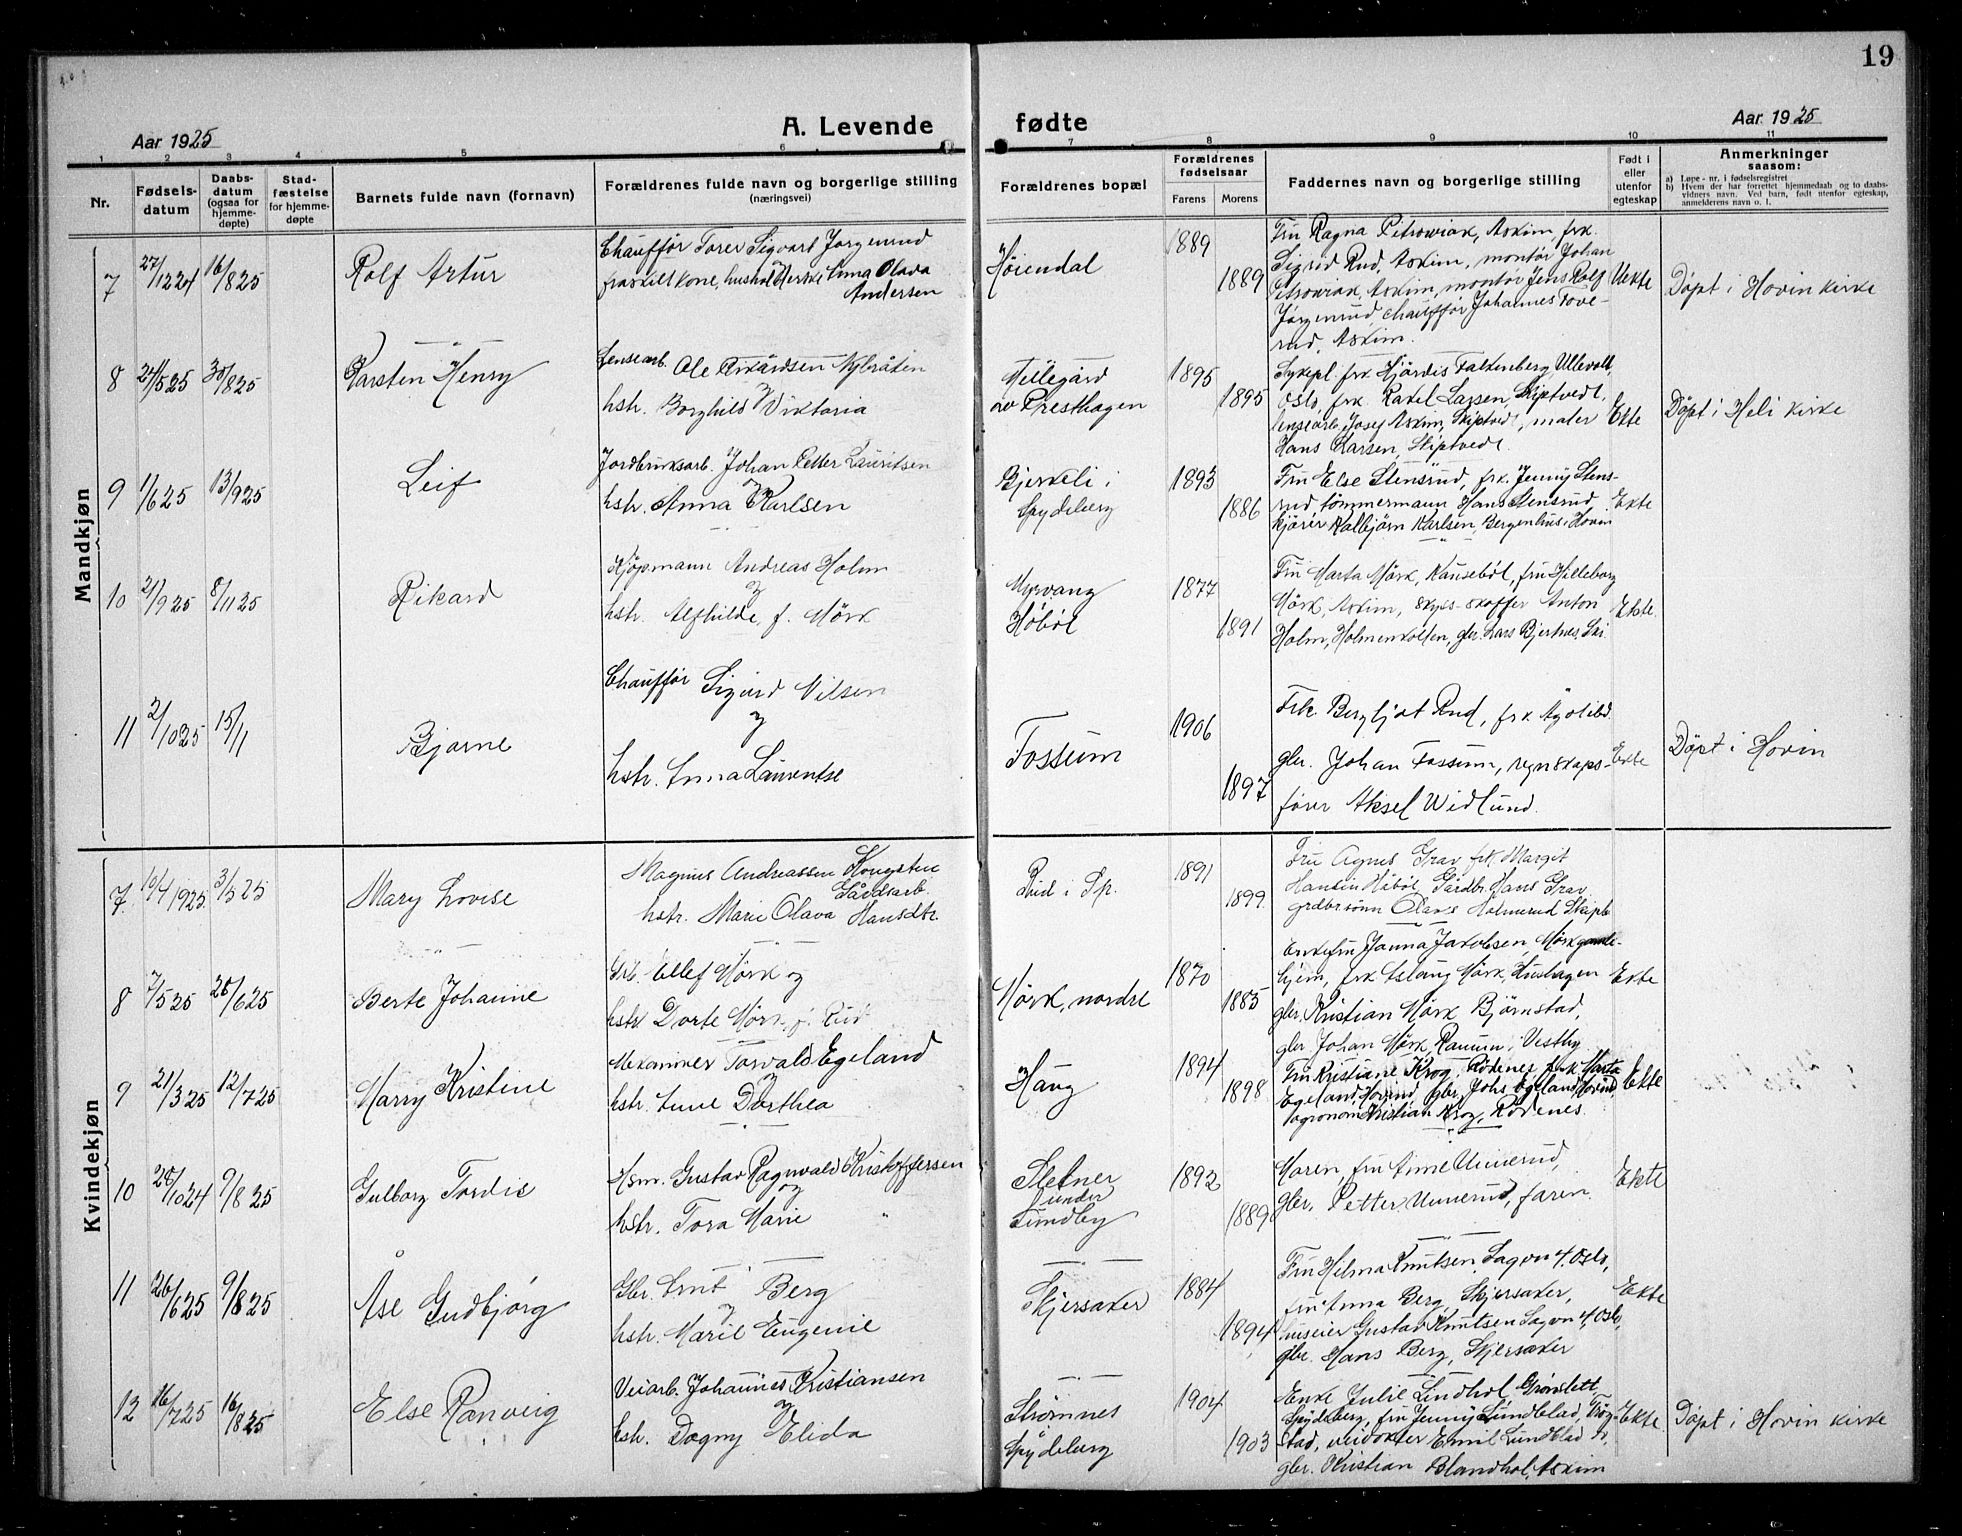 19
Aar 1925
A. Levende fødte
Aar 1925
1 2 3 4 5 6 7 8 9 10 11
Nr.
Fødsels-
datum
Daabs-
datum
(ogsaa for
hjemme-
døpte)
Stad-
fæstelse
for hjemme-
døpte
Barnets fulde navn (fornavn)
Forældrenes fulde navn og borgerlige stilling
(næringsvei)
Forældrenes bopæl
Forældrenes
fødselsaar
Farens
Morens
Faddernes navn og borgerlige stilling
Født i
eller
utenfor
egteskap
Anmerkninger
saasom:
a) Løpe-nr. i fødselsregistret
b) Hvem der har forrettet hjemmedaab og to daabs-
vidners navn. Ved barn, født utenfor egteskap,
anmelderens navn o. l.
Mandkjøn
7 27/12 24 16/8 25 Rolf Artur
Chauffør Torer Sigvart Jørgenrud
fraskilt kone, Anna Olava
Andersen
Høiendal
1889
1889
Fru Ragna Petrowiak, Askim, frk.
Sigrid Rud, Askim, montør Johan
Petrowiak, Askim, montør Jens Rolf
Jørgenrud, chauffør Johannes Tove-
rud, Askim.
Uekte
Döpt i Hovin kirke
8 24/5 25 30/8 25 Karsten Henry
Lensearb. Ole Rikardsen Nybråten
og
hstr. Borghild Viktoria
Hellegård
av Presthagen
1895
1895
Sykepl. frk Hjördis Falkenberg Ullevold,
Oslo, frk Rakel Larsen, Skiptvedt,
lensearb. Josef Askim, Skiptvedt, maler
Hans Larsen, Skiptvedt
Ekte
Döpt i Heli kirke
9 1/6 25 13/9 25 Leif
Jordbruksarb. Johan Petter Lauritsen
og
hstr. Anna Karlsen
Bjerkeli i
Spydeberg
1893
1886
Fru Else Stensrud, frk. Jenny Stens-
rud, tømmermann Hans Stensrud,
kjörer Kalbjörn Karlsen, Bergenhus i Hovin
Ekte
10 21/9 25 8/11 25 Rikard
Kjöpmann Andreas Holm
og
hstr. Alfhilde, f. Mörk
Myrvang
Höböl
1877
1891
Fru Marta Mörk, fru Hilleborg
Mörk, Askim, skyss-skaffer Anton
Holm, Holmenkollen, gbr. Lars Bjertnes, Ski.
Ekte.
11 2/10 25 15/11 Bjarne
Chauffør Sigurd Nilsen
og
hstr. Anna Laurentse
Fossum
1906
1897
Frk. Bergljot Rud, frk
gbr. Johan Fossum, regnskaps-
fører Aksel Widlund.
Ekte
Döpt i Hovin
Kvindekjøn
7. 10/4 1925. 3/5 25 Mary Lovise
Magnus Andreassen Kongstue
Gårdsarb.
hstr. Marie Olava Hansdtr.
Rud i Sp.
1891
1899.
Fru Agnes Grav frk. Margit
Hansen Höböl, Gårdbr. Hans Grav
Olav Holmerud Skiptv.
8 7/5 25 25/6 25 Berte Johanne
Gbr. Ellef Mörk og
hstr Dorte Mörk, f. Rud
Mörk, nordre
1870
1885
Enkefru Janna Jakobsen, Mörk gamle-
hjem, frk Aslaug Mörk, Hushagen
gbr. Kristian Mörk Björnstad,
gbr. Johan Mörk, i Vestby
Ekte
9 21/3 25 12/7 25 Marry Kristine
Mekaniker Torvald Egeland
og
hstr. Anne Dorthea
Haug
1894
1898
Fru Kristiane Krog, Rödenes frk Marta
Egeland, Hovind, gbr. Johs Egeland, Hovind,
agronom Kristian Krog, Rödenes.
Ekte
10 20/10 24 9/8 25 Gulborg Tordis
Hsm. Gustav Ragnvald Kristoffersen
og
hstr. Tora Marie
Sletner
under
Lundby
1892
1889
Moren, fru Anne Unnerud,
gbr. Petter Unnerud, faren.
Ekte
11 26/6 25 9/8 25 Åse Gudbjørg
Gbr. Knut Berg
og
hstr. Maril Eugenie
Skjersaker
1884
1894
Fru Helma Knutsen, Sagvn 4, Oslo,
fru Anna Berg, Skjersaker,
huseier Gustav Knutsen Sagvn 4, Oslo,
gbr. Hans Berg, Skjersaker
Ekte
12 16/7 25 16/8 25 Else Ranveig
Veiarb. Johannes Kristiansen
og
hstr. Dagny Elida
Strømnes
Spydeberg
1904
1903
Enke Julie Lindhol, Grönslett,
Spydeberg, fru Jenny Lundblad, Trøg-
stad, veivokter Emil Lundblad
gbr. Kristian Blandhol, Askim
Ekte
Döpt i Hovin kirke